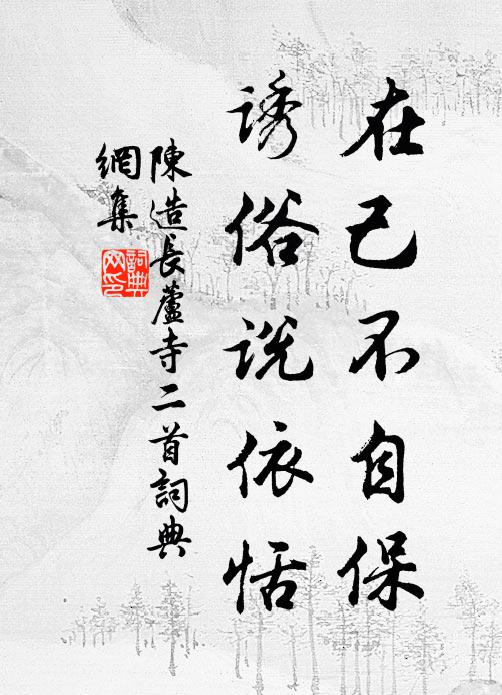 在己不自保
诱俗说依恬
陳造長蘆寺二首詞典
網集
詞典
网印